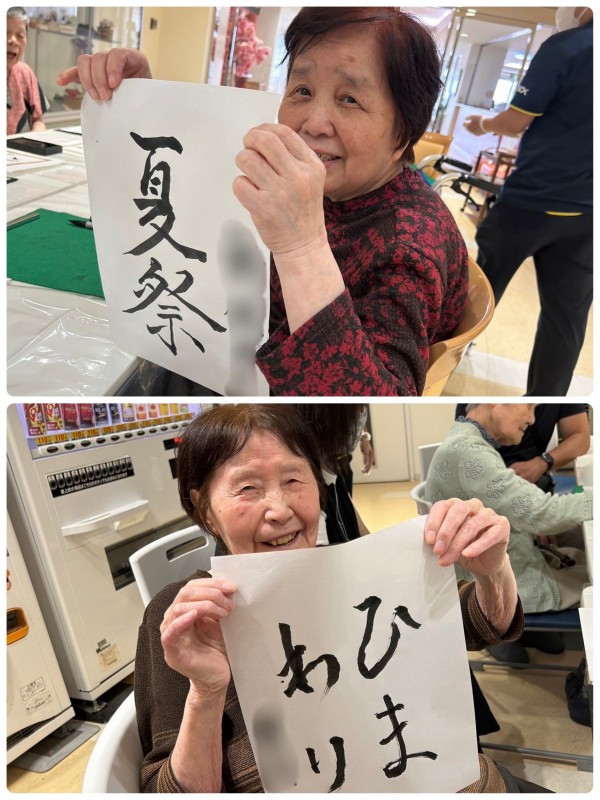 夏祭
ひま
わり